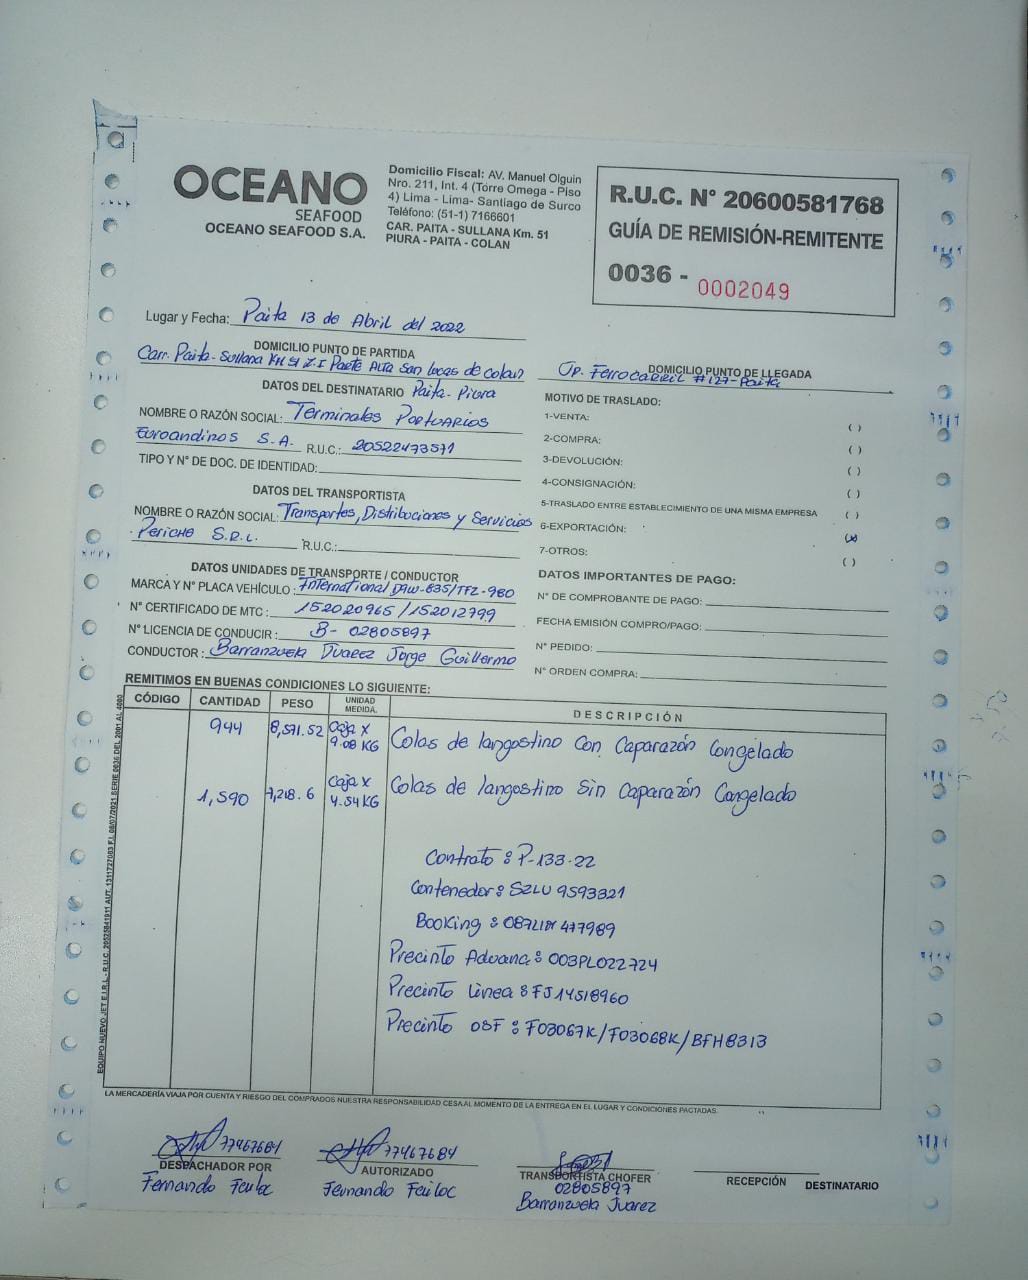 OCEANO
SEAFOOD
OCEANO SEAFOOD S.A.
Domicilio Fiscal: AV. Manuel Olguin
Nro. 211, Int. 4 (Torre Omega - Piso
4) Lima - Lima- Santiago de Surco
Teléfono: (51-1) 7166601
CAR. PAITA - SULLANA Km. 51
PIURA - PAITA - COLAN
R.U.C. N° 20600581768
GUÍA DE REMISIÓN-REMITENTE
0036 - 0002049
Lugar y Fecha: Paita 13 de Abril del 2022
DOMICILIO PUNTO DE PARTIDA
Carr. Paita-Sullana KM 51 Z.I Parte Alta San Lucas de Colan
Paita-Piura
DOMICILIO PUNTO DE LLEGADA
Ferrocarril #127-Paita
DATOS DEL DESTINATARIO
NOMBRE O RAZÓN SOCIAL: Terminales Portuarios
Euroandinos S.A. R.U.C.: 20522473571
TIPO Y N° DE DOC. DE IDENTIDAD:
DATOS DEL TRANSPORTISTA
NOMBRE O RAZÓN SOCIAL: Transportes, Distribuciones y Servicios
Periche S.R.L. R.U.C.:
DATOS UNIDADES DE TRANSPORTE / CONDUCTOR
MARCA Y N° PLACA VEHÍCULO: International DAW-835/TFZ-980
N° CERTIFICADO DE MTC: 152020965 /152012799
N° LICENCIA DE CONDUCIR: B-02805897
CONDUCTOR: Barranzuela Juarez Jorge Guillermo
MOTIVO DE TRASLADO:
1-VENTA: ( )
2-COMPRA: ( )
3-DEVOLUCIÓN: ( )
4-CONSIGNACIÓN: ( )
5-TRASLADO ENTRE ESTABLECIMIENTO DE UNA MISMA EMPRESA ( )
6-EXPORTACIÓN: (x)
7-OTROS: ( )
DATOS IMPORTANTES DE PAGO:
N° DE COMPROBANTE DE PAGO:
FECHA EMISIÓN COMPRO/PAGO:
N° PEDIDO:
N° ORDEN COMPRA:
REMITIMOS EN BUENAS CONDICIONES LO SIGUIENTE:
CÓDIGO CANTIDAD PESO UNIDAD MEDIDA. DESCRIPCIÓN
944 8,571.52 Caja x 9.08 KG Colas de langostino Con Caparazón Congelado
1,590 7,218.6 Caja x 4.54 KG Colas de langostino Sin Caparazón Congelado
Contrato: P-133-22
Contenedor: SZLU 9593321
Booking: 477989
Precinto Aduana: 003PL022724
Precinto Linea: FJ14518960
Precinto OSF: F03067K/F03068K/BFH8313
EQUIPO NUEVO JET E.I.R.L. - R.U.C. 20525841911 AUT. 1311727083 F.I. 08/07/2021 SERIE 0036 DEL 2001 AL 4000
LA MERCADERÍA VIAJA POR CUENTA Y RIESGO DEL COMPRADOS NUESTRA RESPONSABILIDAD CESA AL MOMENTO DE LA ENTREGA EN EL LUGAR Y CONDICIONES PACTADAS.
77467684
DESPACHADOR POR
Fernando
77467684
AUTORIZADO
Fernando
TRANSPORTISTA CHOFER
02805897
Barranzuela Juarez
RECEPCIÓN DESTINATARIO